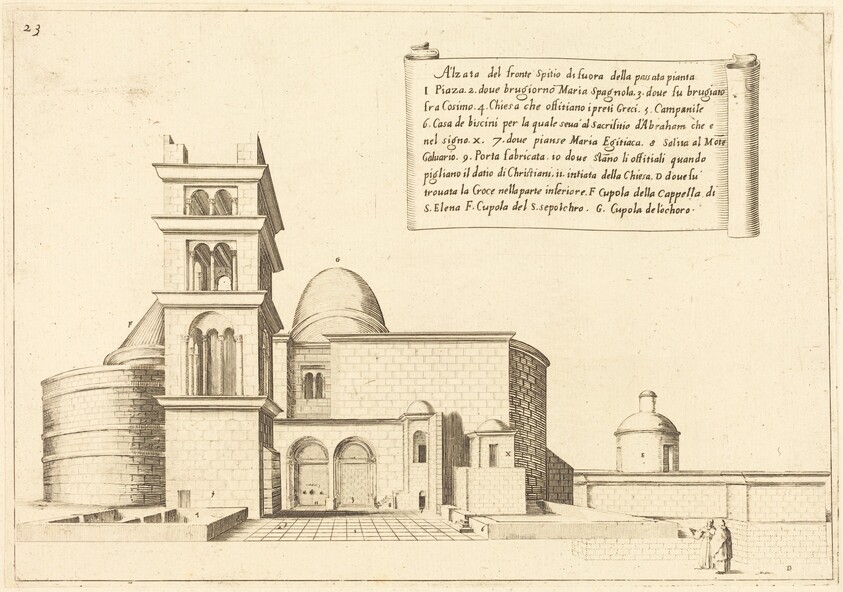 23
Alzata del fronte Spitio di fuora della passata pianta
1 Piaza. 2. doue brugiorno Maria Spagnola. 3. doue fu brugiato
fra Cosimo. 4. Chiesa che offitiano i preti Greci. 5. Campanile
6. Casa de biscini per la quale seua al Sacrifitio d'Abraham che e
nel signo. x. 7. doue pianse Maria Egitiaca. 8 Salita al Mote
Caluario. 9. Porta fabricata. 10 doue stano li offitiali quando
pigliano il datio di Christiani. 11. intiata della Chiesa. D doue fu
trouata la Croce nella parte inferiore. F Cupola della Cappella di
S. Elena F. Cupola del S. sepolchro. G. Cupola de lochoro.
G
F
E
X
D